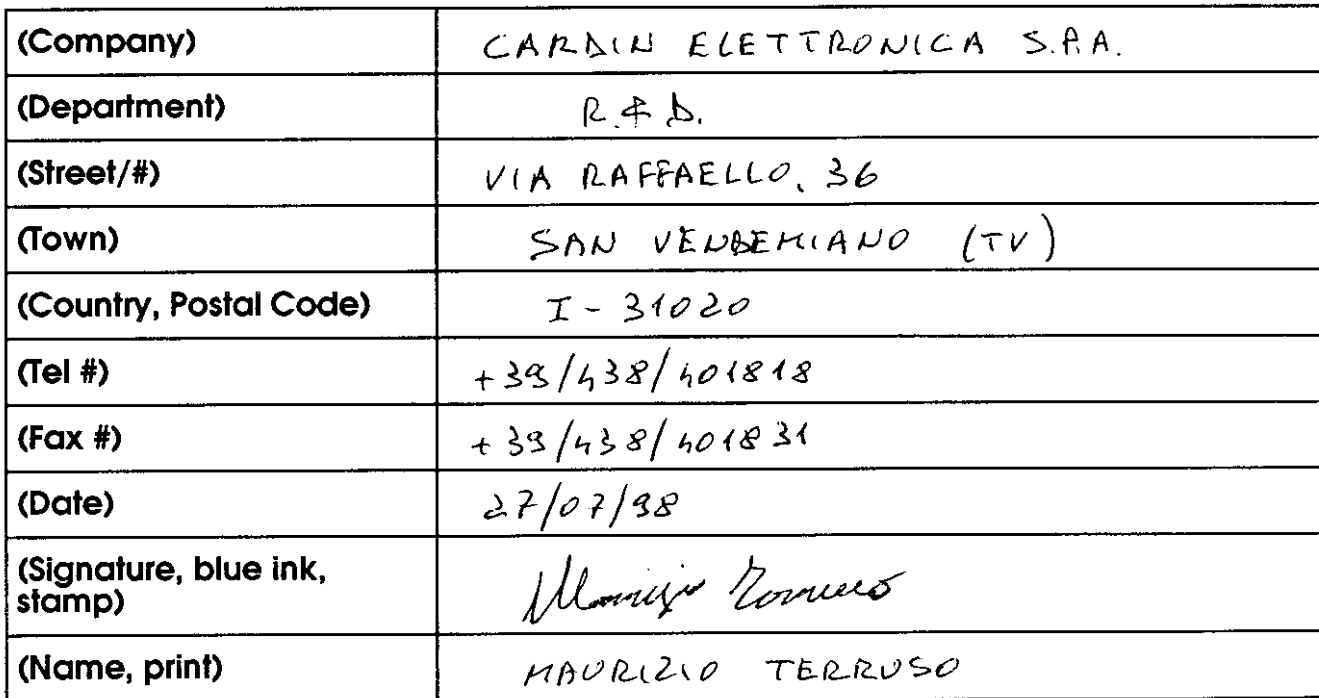 (Company) CARDIN ELETTRONICA S.P.A.
(Department) R & D.
(Street/#) VIA RAFFAELLO, 36
(Town) SAN VENDEMIANO (TV)
(Country, Postal Code) I - 31020
(Tel #) +39/438/401818
(Fax #) +39/438/401831
(Date) 27/07/98
(Signature, blue ink,
stamp) Maurizio Terruso
(Name, print) MAURIZIO TERRUSO